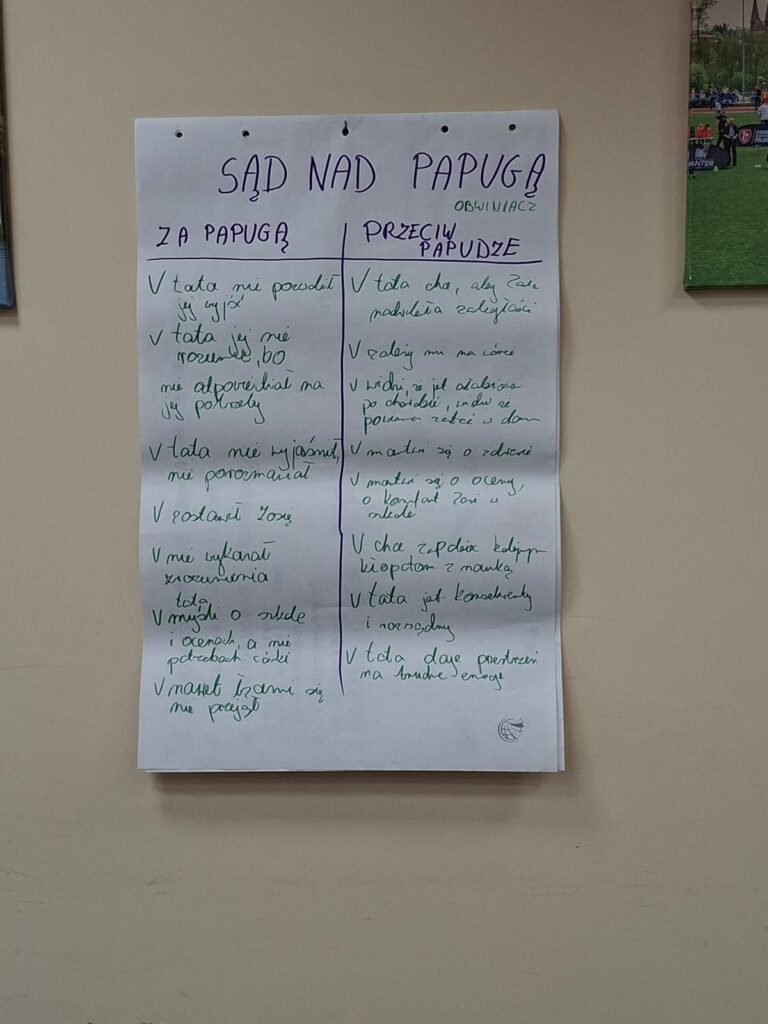 SĄD NAD PAPUGĄ
OBWINIACZ
ZA PAPUGĄ
V tata nie pozwolił
jej wyjść
V tata jej nie
rozumie, bo
nie odpowiedział na
jej potrzeby
V tata nie wyjaśnił,
nie porozmawiał
V zostawił Zosię
V nie wykazał
zrozumienia
tata
V myśli o szkole
i ocenach, a nie
potrzebach córki
V nawet łzami się
nie przejął
PRZECIW
PAPUDZE
V tata chce, aby Zosia
nadrobiła zaległości
V zależy mu na córce
V widzi, że jest osłabiona
po chorobie, widzi że
powinna zostać w domu
V martwi się o zdrowie
V martwi się o oceny,
o komfort Zosi w
szkole
V chce zapobiec kolejnym
kłopotom z nauką
V tata jest konsekwentny
i rozsądny
V tata daje przestrzeń
na trudne emocje